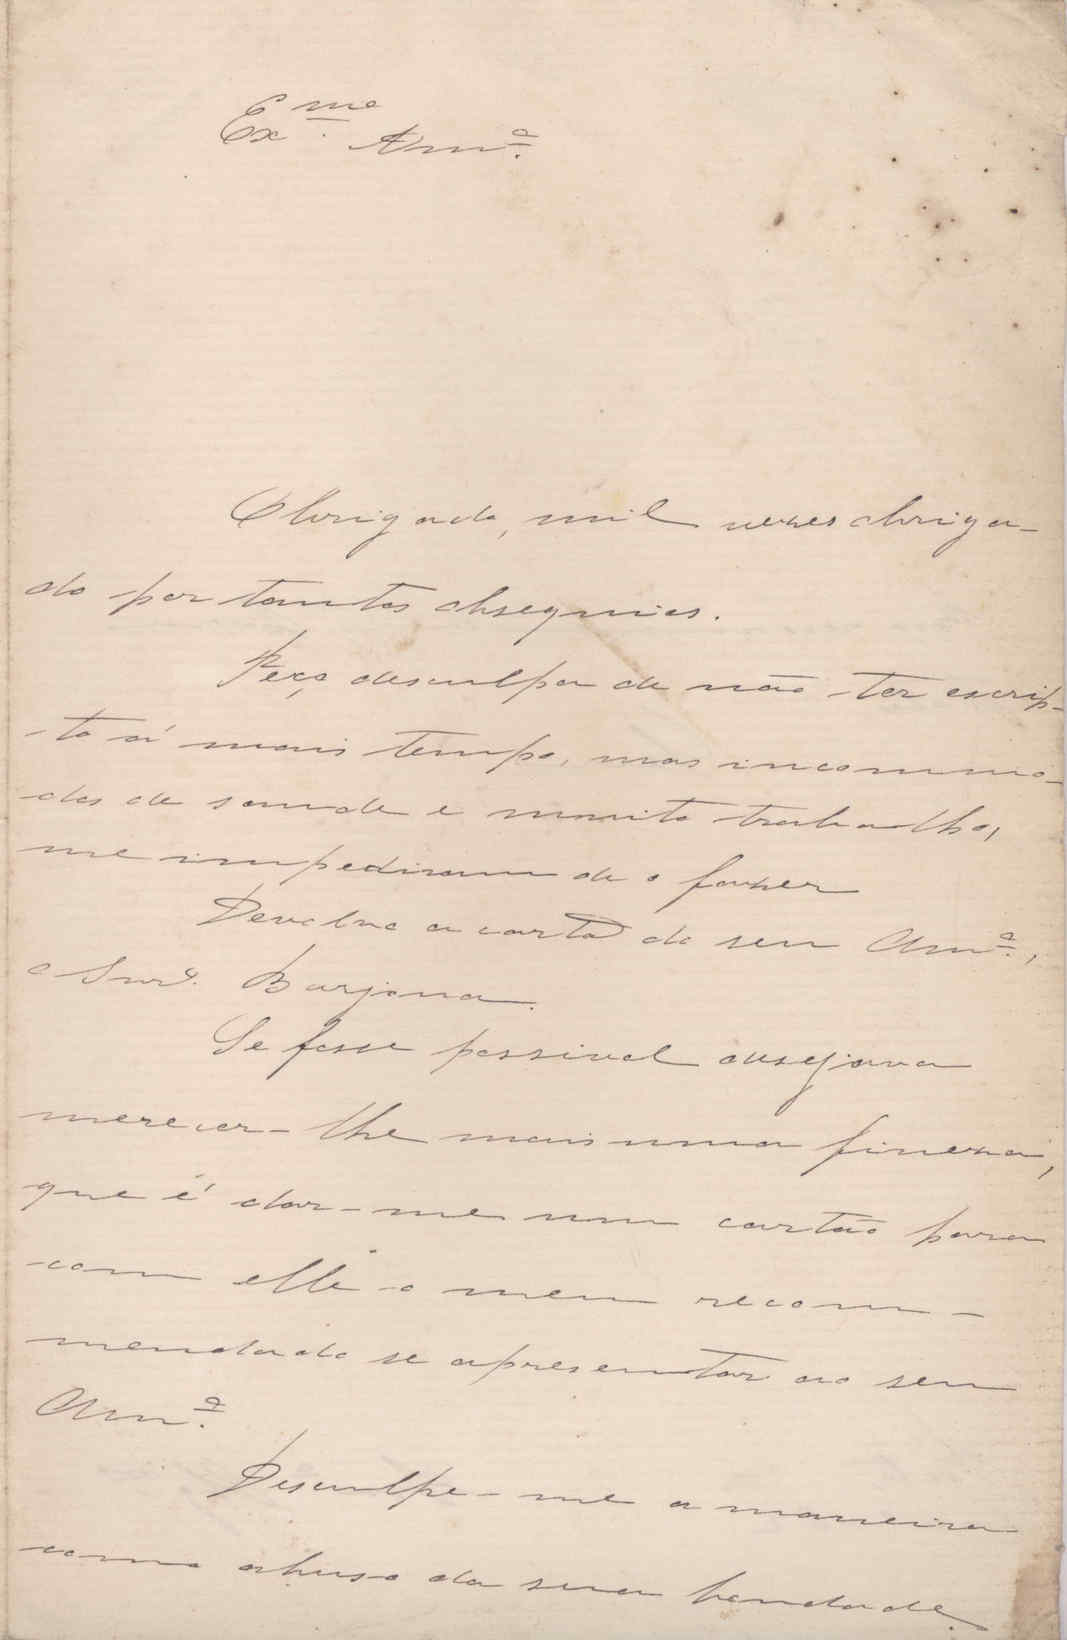 Ex.me Am.o
Obrigado, mil vezes obriga-
do por tantos obsequios.
Peço desculpa de não ter escrip-
to á mais tempo, mas incommo-
dos de saude e muito trabalho,
me impediram de o fazer
Devolvo a carta do seu Am.o,
o Snr. Barjona.
Se fosse possivel desejava
merecer-lhe mais uma fineza,
que é dar-me um cartão para
com elle o meu recom-
mendado se apresentar ao seu
Am.o
Desculpe-me a maneira
como abuso da sua bondade.